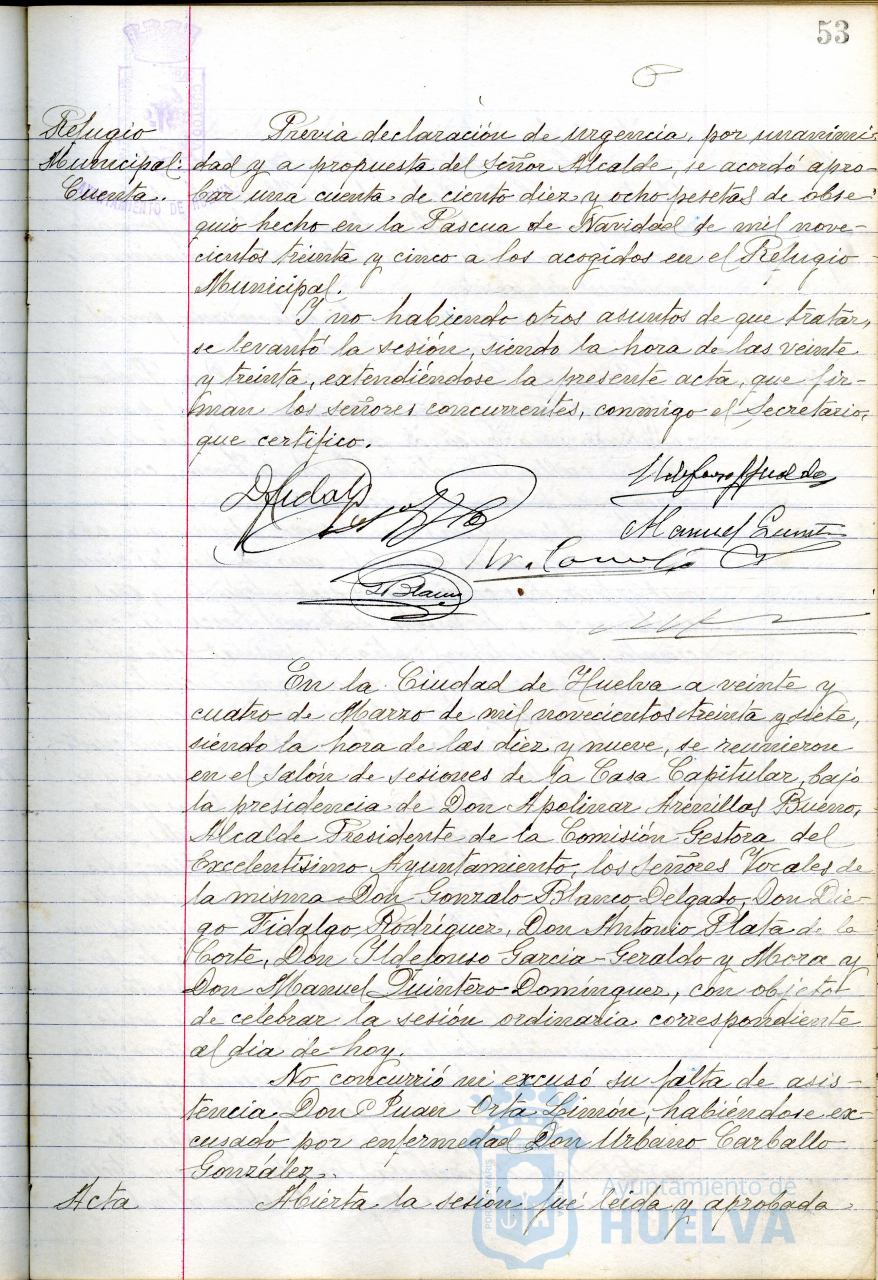 53
Refugio
Municipal:
Cuenta.
Previa declaración de urgencia, por unanimi-
dad y a propuesta del señor Alcalde, se acordó apro-
bar una cuenta de ciento diez y ocho pesetas de obse-
quio hecho en la Pascua de Navidad de mil nove-
cientos treinta y cinco a los acogidos en el Refugio
Municipal.
Y no habiendo otros asuntos de que tratar,
se levantó la sesión, siendo la hora de las veinte
y treinta, extendiéndose la presente acta, que fir-
man los señores concurrentes, conmigo el Secretario,
que certifico.
D Fidalgo
Manuel Quintero
G Blanco
En la Ciudad de Huelva a veinte y
cuatro de Marzo de mil novecientos treinta y siete,
siendo la hora de las diez y nueve, se reunieron
en el salón de sesiones de la Casa Capitular, bajo
la presidencia de Don Apolinar Arenillas Bueno,
Alcalde Presidente de la Comisión Gestora del
Excelentísimo Ayuntamiento, los señores Vocales de
la misma Don Gonzalo Blanco Delgado, Don Die-
go Fidalgo Rodríguez, Don Antonio Plata de la
Corte, Don Ildefonso García-Geraldo y Mora y
Don Manuel Quintero Domínguez, con objeto
de celebrar la sesión ordinaria correspondiente
al día de hoy.
No concurrió ni excusó su falta de asis-
tencia Don Juan Orta Limón, habiéndose ex-
cusado por enfermedad Don Urbano Carballo
González.
Acta
Abierta la sesión fué leida y aprobada
Ayuntamiento de
HUELVA